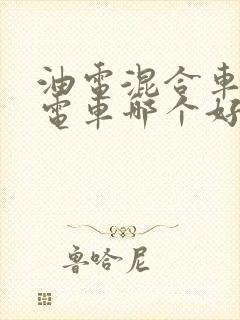 油電混合車
電車哪个好
魯哈尼